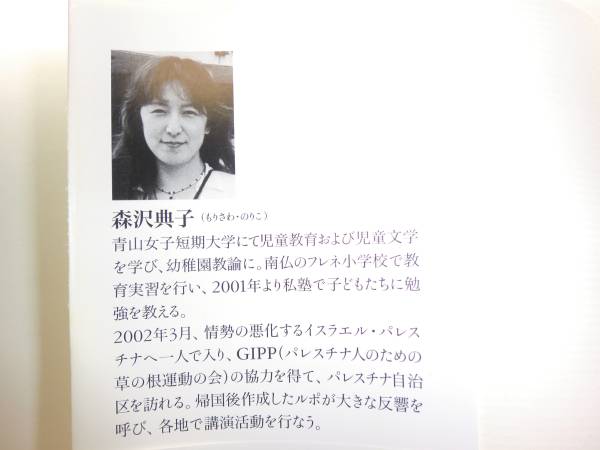 森沢典子（もりさわ・のりこ）
青山女子短期大学にて児童教育および児童文学
を学び、幼稚園教諭に。南仏のフレネ小学校で教
育実習を行い、2001年より私塾で子どもたちに勉
強を教える。
2002年3月、情勢の悪化するイスラエル・パレス
チナへ一人で入り、GIPP（パレスチナ人のための
草の根運動の会）の協力を得て、パレスチナ自治
区を訪れる。帰国後作成したルポが大きな反響を
呼び、各地で講演活動を行なう。